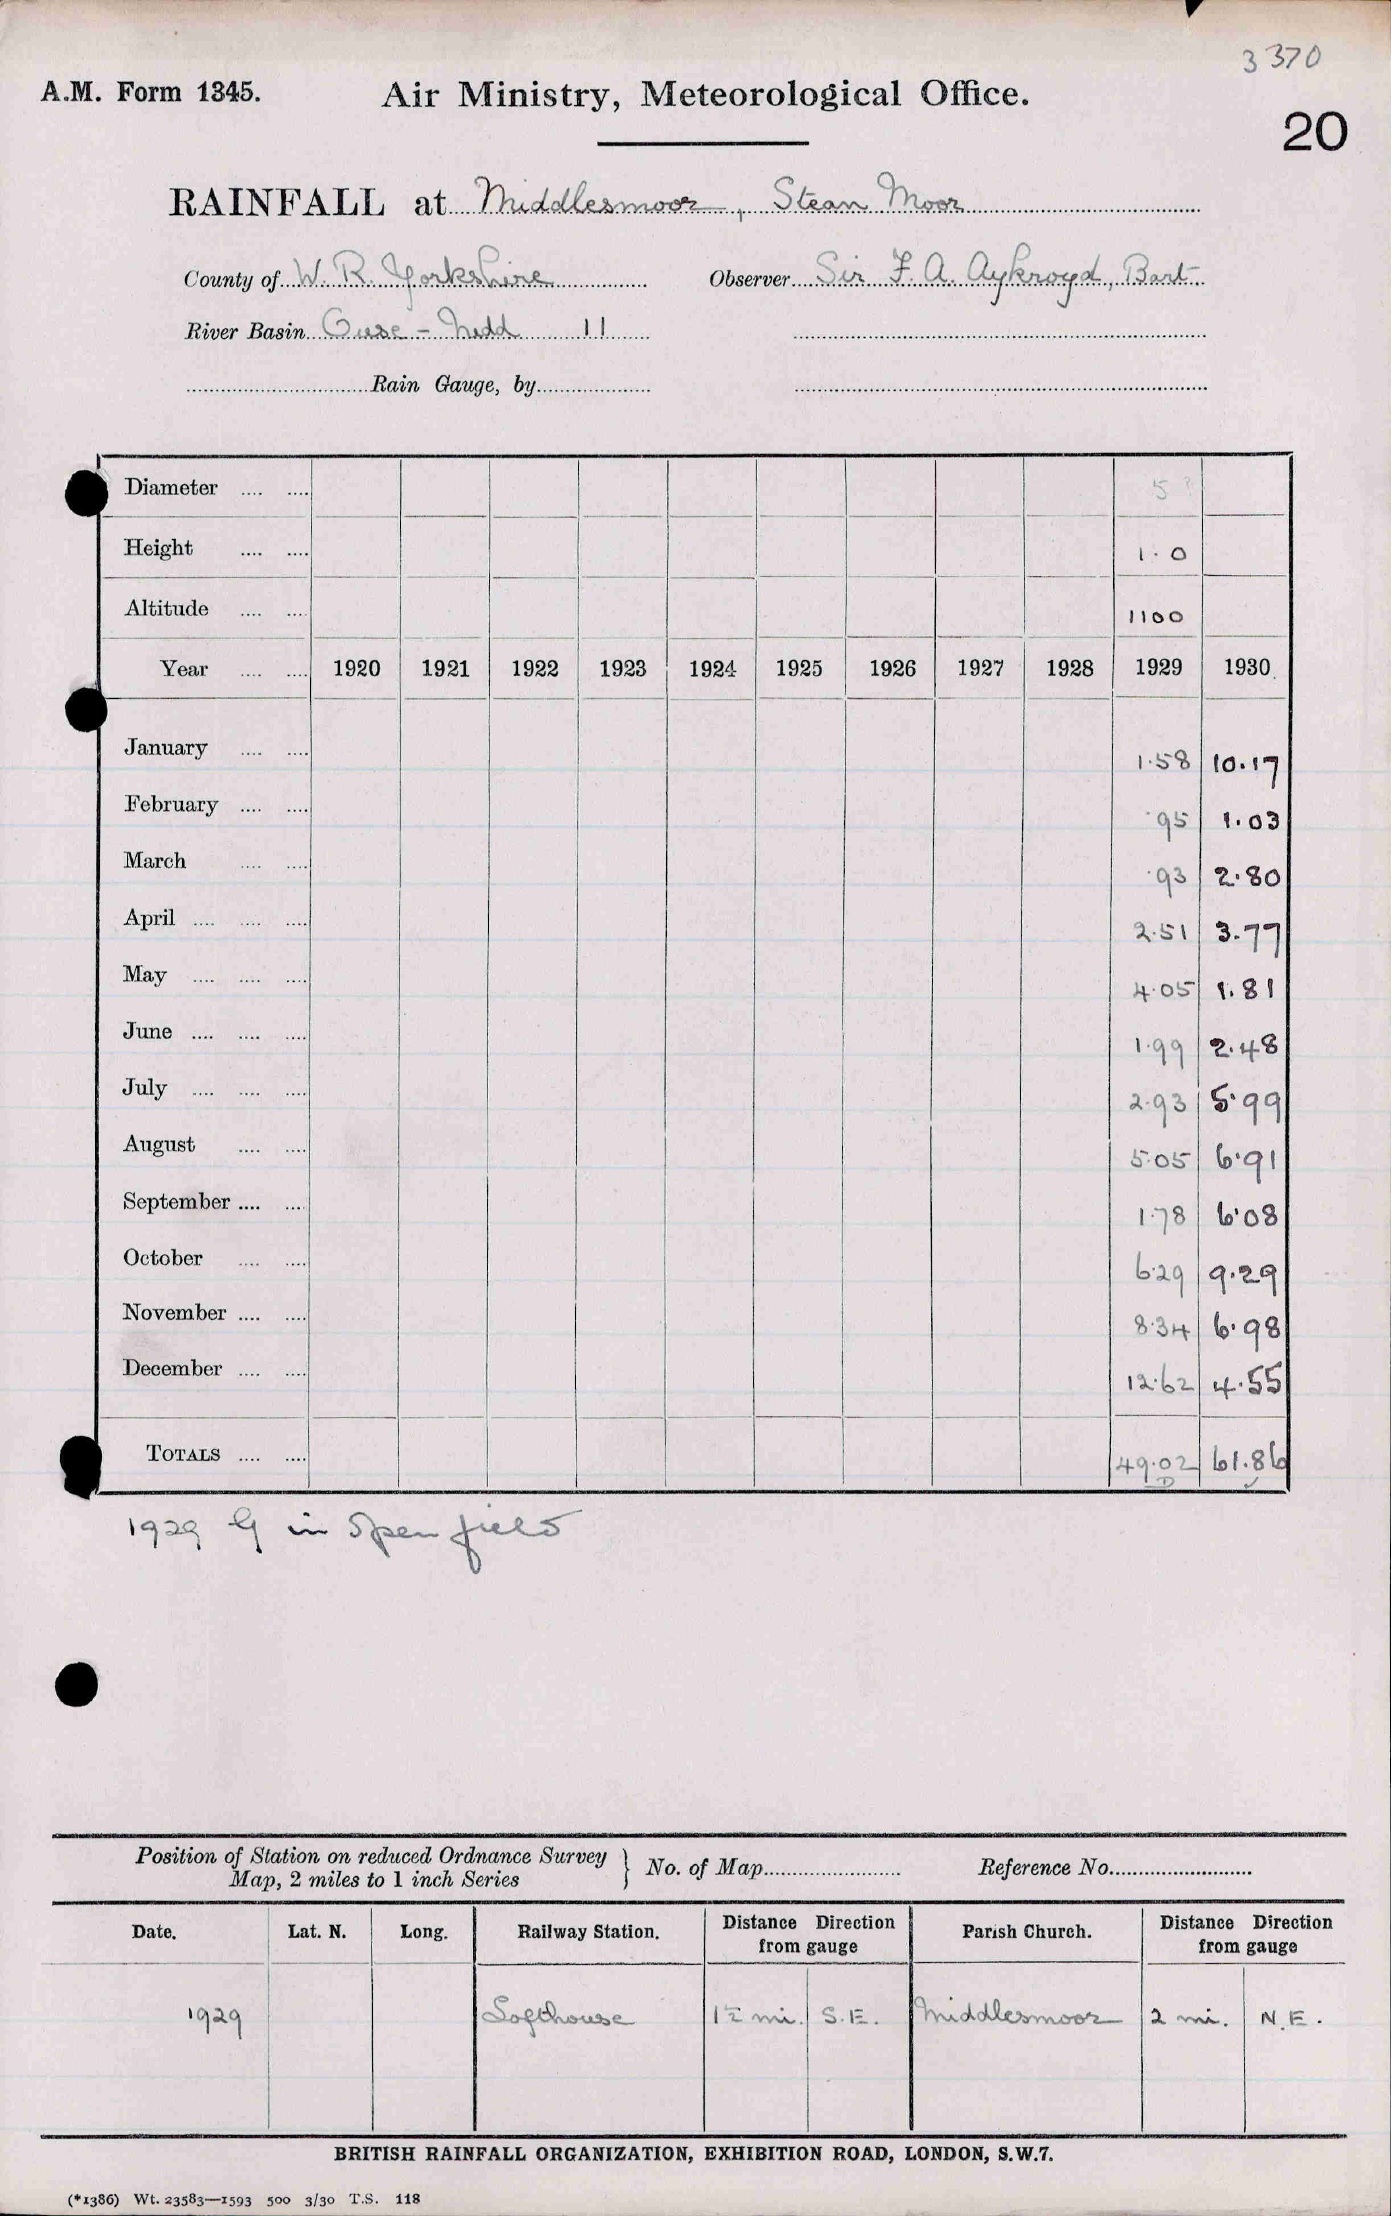 3370
A.M. Form 1345. Air Ministry, Meteorological Office.
20
RAINFALL at Middlesmoor, Stean Moor
County of W. R. Yorkshire Observer Sir F. A. Aykroyd, Bart.
River Basin Ouse - Nidd 11
Rain Gauge, by
Diameter 5 ?
Height 1.0
Altitude 1100
Year 1920 1921 1922 1923 1924 1925 1926 1927 1928 1929 1930.
January 1.58 10.17
February .95 1.03
March .93 2.80
April 2.51 3.77
May 4.05 1.81
June 1.99 2.48
July 2.93 5.99
August 5.05 6.91
September 1.78 6.08
October 6.29 9.29
November 8.34 6.98
December 12.62 4.55
TOTALS 49.02 61.86
D ✓
1929 G in open field
Position of Station on reduced Ordnance Survey
Map, 2 miles to 1 inch Series } No. of Map Reference No.
Date. Lat. N. Long. Railway Station. Distance Direction from gauge Parish Church. Distance Direction from gauge
1929 Lofthouse 1½ mi. S.E. Middlesmoor 2 mi. N.E.
BRITISH RAINFALL ORGANIZATION, EXHIBITION ROAD, LONDON, S.W.7.
(*1386) Wt. 23583—1593 500 3/30 T.S. 118